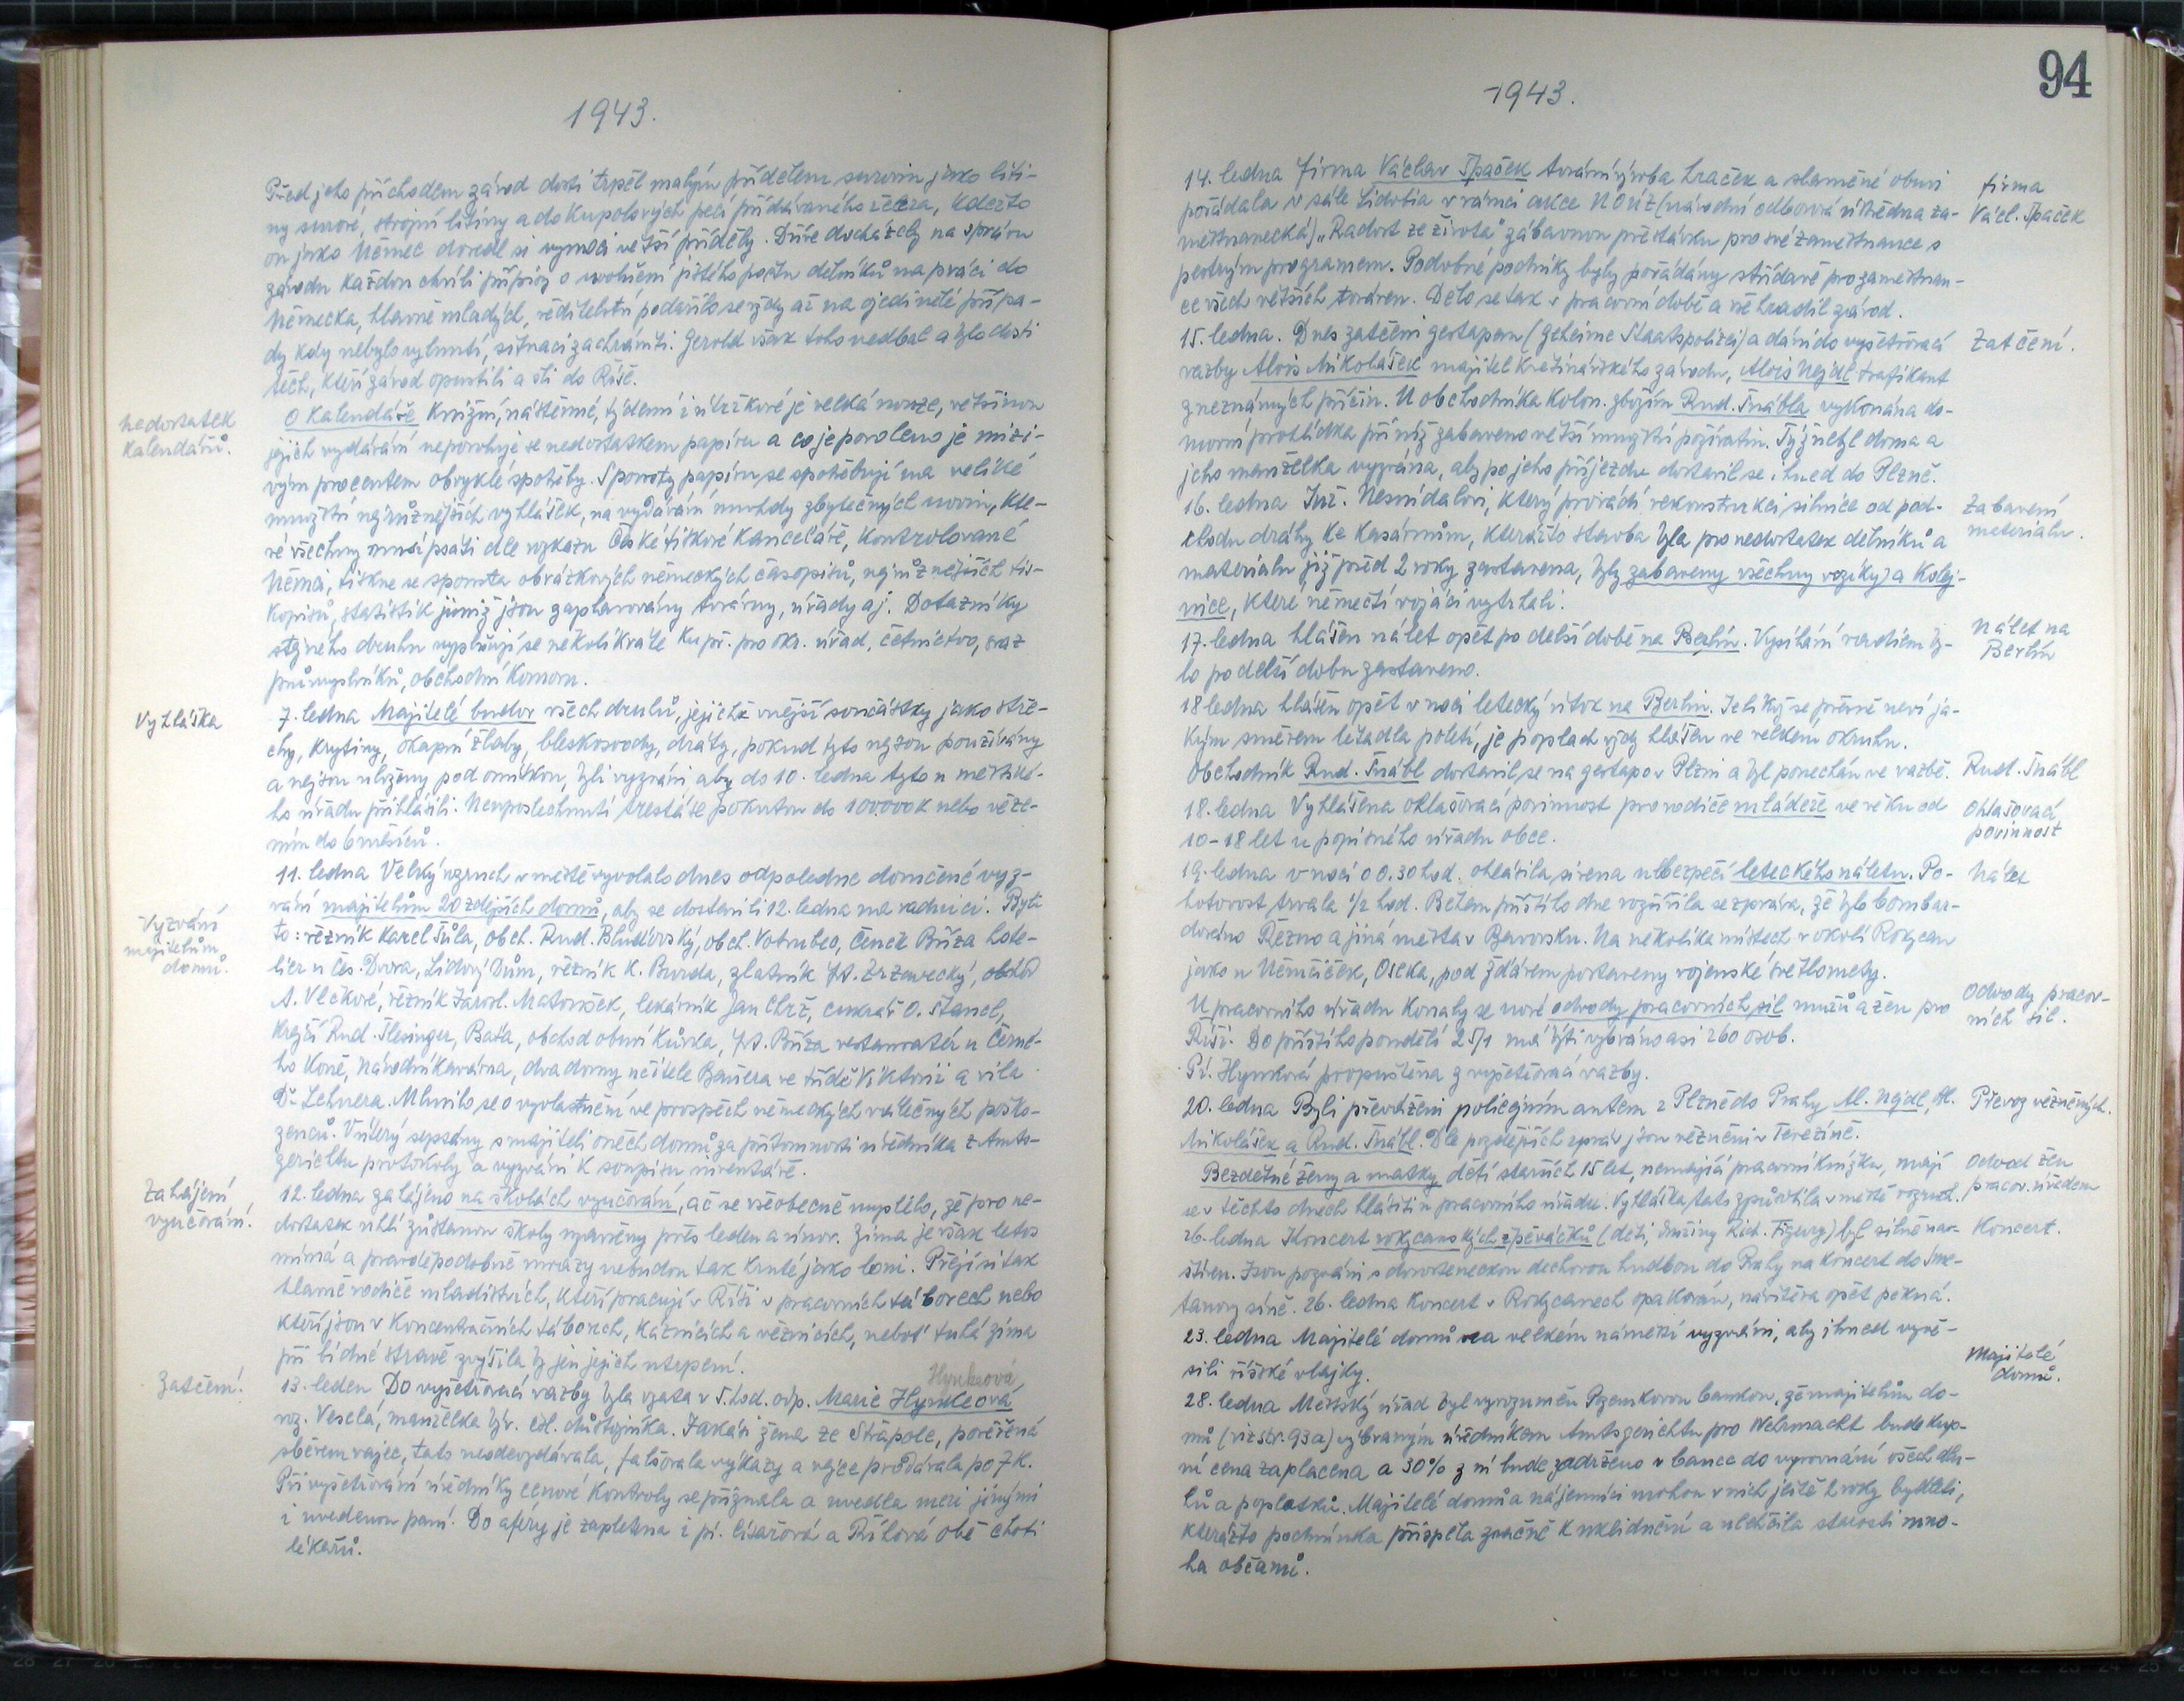 1943.
Před jeho příchodem závod dosti trpěl malým přídělem surovin jako liti-
ny surové, strojní litiny a do kupolových pecí přidávaného železa, kdežto
on jako Němec dovedl si vymoci větší příděly. Dříve docházely na správu
závodu každou chvíli přípisy o uvolnění jistého počtu dělníků na práci do
Německa, hlavně mladých, ředitelství podařilo se vždy až na ojedinělé přípa-
dy kdy nebylo vyhnutí, situaci zachrániti. Gerold však toho nedbal a bylo dosti
těch, kteří závod opustili a šli do Říše.
nedostatek
kalendářů.
O kalendáře knižní, nástěnné, týdenní i útržkové je velká nouze, většinou
jejich vydávání nepovoluje se nedostatkem papíru a co je povoleno je mizi-
vým procentem obvyklé spotřeby. Spousty papíru se spotřebují na veliké
množství nejrůznějších vyhlášek, na vydávání mnohdy zbytečných novin, kte-
ré všechny musí psáti dle vzkazu České tiskové kanceláře, kontrolované
Němci, tiskne se spousta obrázkových německých časopisů, nejrůznějších tis-
kopisů, statistik jimiž jsou zaplavovány továrny, úřady aj. Dotazníky
stejného druhu vyplňují se několikráte ku př. pro okr. úřad, četnictvo, svaz
průmyslníků, obchodní komoru.
Vyhláška
7. ledna Majitelé budov všech druhů, jejichž vnější součástky jako stře-
chy, krytiny, okapní žlaby, bleskosvody, dráty, pokud tyto nejsou používány
a nejsou uloženy pod omítkou, byli vyzváni aby do 10. ledna tyto u městské-
ho úřadu přihlásili. Neuposlechnutí trestá se pokutou do 100.000 K nebo věze-
ním do 6 měsíců.
11. ledna Velký rozruch v městě vyvolalo dnes odpoledne doručené vyz-
vání majitelům 20 zdejších domů, aby se dostavili 12. ledna na radnici. Byli
Vyzvání
majitelům
domů.
to: řezník Karel Šůla, obch. Rud. Bluďovský, obch. Votrubec, Čeněk Bříza hote-
liér u čes. Dvora, Lidový Dům, řezník K. Burda, zlatník Fr. Brzewecký, obchod
A. Vlčkové, řezník Jarosl. Matoušek, lékárník Jan Chrž, cukrář O. Štancl,
krejčí Rud. Šlesinger, Baťa, obchod obuví Kůrka, Fr. Bříza restauratér u Černé-
ho Koně, Národní kavárna, dva domy učitele Bauera ve třídě Viktorii a vila
Dr. Lehnera. Mluvilo se o vyvlastnění ve prospěch německých válečných poško-
zenců. V úterý sepsány s majiteli oněch domů za přítomnosti úředníka z Amts-
gerichtu protokoly a vyzváni k soupisu inventáře.
Zahájení
vyučování.
12. ledna zahájeno na školách vyučování, ač se všeobecně myslelo, že pro ne-
dostatek uhlí zůstanou školy uzavřeny přes leden a únor. Zima je však letos
mírná a pravděpodobně mrazy nebudou tak kruté jako loni. Přejí si tak
hlavně rodiče mladistvích, kteří pracují v Říši v pracovních táborech nebo
kteří jsou v koncentračních táborech, káznicích a věznicích, neboť tuhá zima
při bídné stravě zvýšila by jen jejich utrpení.
Hynková
Zatčení.
13. leden Do vyšetřovací vazby byla vzata v 5. hod. odp. Marie Hynkeová
roz. Veselá, manželka býv. čsl. důstojníka. Jakási žena ze Strápole, pověřená
sběrem vajec, tato neodevzdávala, falšovala výkazy a vejce prodávala po 7 K.
Při vyšetřování úředníky cenové kontroly se přiznala a uvedla mezi jinými
i uvedenou paní. Do aféry je zapletena i pí. Císařová a Říhová obě choti
lékařů.
1943.
94
14. ledna firma Václav Špaček tovární výroba hraček a slaměné obuvi
firma
Václ. Špaček
pořádala v sále Lidovia v rámci akce NOÚZ (národní odborová ústředna za-
městnanecká) „Radost ze života" zábavnou přestávku pro své zaměstnance s
pestrým programem. Podobné podniky byly pořádány střídavě pro zaměstnan-
ce všech větších továren. Dělo se tak v pracovní době a vše hradil závod.
15. ledna. Dnes zatčeni gestapem (Geheime Staatspolizei) a dáni do vyšetřovací
Zatčení.
vazby Alois Mikolášek majitel květinářského závodu, Alois Nejdl trafikant
z neznámých příčin. U obchodníka kolon. zbožím Rud. Šnábla vykonána do-
movní prohlídka při níž zabaveno větší množství poživatin. Týž nebyl doma a
jeho manželka vyzvána, aby po jeho příjezdu dostavil se ihned do Plzně.
16. ledna Inž. Nesnídalovi, který provádí rekonstrukci silnice od pod-
Zabavení
materialu.
chodu dráhy ke kasárnům, kterážto stavba byla pro nedostatek dělníků a
materiálu již před 2 roky zastavena, byly zabaveny všechny vozíky a kolej-
nice, které němečtí vojáci vytrhali.
17. ledna hlášen nálet opět po delší době na Berlín. Vysílání radiem by-
Nálet na
Berlín
lo po delší dobu zastaveno.
18 ledna hlášen opět v noci letecký útok na Berlin. Jelikož se přesně neví ja-
kým směrem letadla poletí, je poplach vždy hlášen ve velkém okruhu.
Obchodník Rud. Šnábl dostavil se na gestapo v Plzni a byl ponechán ve vazbě.
Rud. Šnábl
18. ledna Vyhlášena ohlašovací povinnost pro rodiče mládeže ve věku od
Ohlašovací
povinnost
10-18 let u popisného úřadu obce.
19. ledna v noci o 0.30 hod. ohlásila sirena nebezpečí leteckého náletu. Po-
Nálet
hotovost trvala 1/2 hod. Během příštího dne rozšířila se zpráva, že bylo bombar-
dováno Řezno a jiná města v Bavorsku. Na několika místech v okolí Rokycan
jako u Němčiček, Oseka, pod Žďárem postaveny vojenské světlomety.
U pracovního úřadu konaly se nové odvody pracovních sil mužů a žen pro
Odvody pracov-
ních sil.
Říši. Do příštího pondělí 25/1 má býti vybráno asi 260 osob.
Pí. Hynková propuštěna z vyšetřovací vazby.
20. ledna Byli převáženi policejním autem z Plzně do Prahy Al. Nejdl, Al.
Převoz vězněných.
Mikolášek a Rud. Šnábl. Dle pozdějších zpráv jsou vězněni v Terezíně.
Bezdětné ženy a matky dětí starších 15 let, nemající pracovní knížku, mají
Odvod žen
pracov. úřadem
se v těchto dnech hlásiti u pracovního úřadu. Vyhláška tato způsobila v městě rozruch.
26. ledna Koncert rokycanských zpěváčků (děti, družiny Rich. Fizerog) byl silně nav-
Koncert.
štíven. Jsou pozváni s dorosteneckou dechovou hudbou do Prahy na koncert do Sme-
tanovy síně. 26. ledna koncert v Rokycanech opakován, návštěva opět pěkná.
23. ledna Majitelé domů na velkém náměstí vyzváni, aby ihned vyvě-
sili říšské vlajky.
Majitelé
domů.
28. ledna Městský úřad byl vyrozuměn Pozemkovou bankou, že majitelům do-
mů (viz str. 93a) vybraným úředníkem Amtsgerichtu pro Wehrmacht bude kup-
ní cena zaplacena a 30% z ní bude zadrženo v bance do vyrovnání všech dlu-
hů a poplatků. Majitelé domů a nájemníci mohou v nich ještě 2 roky bydleti,
kterážto podmínka přispěla značně k uklidnění a ulehčila starosti mno-
ha občanů.